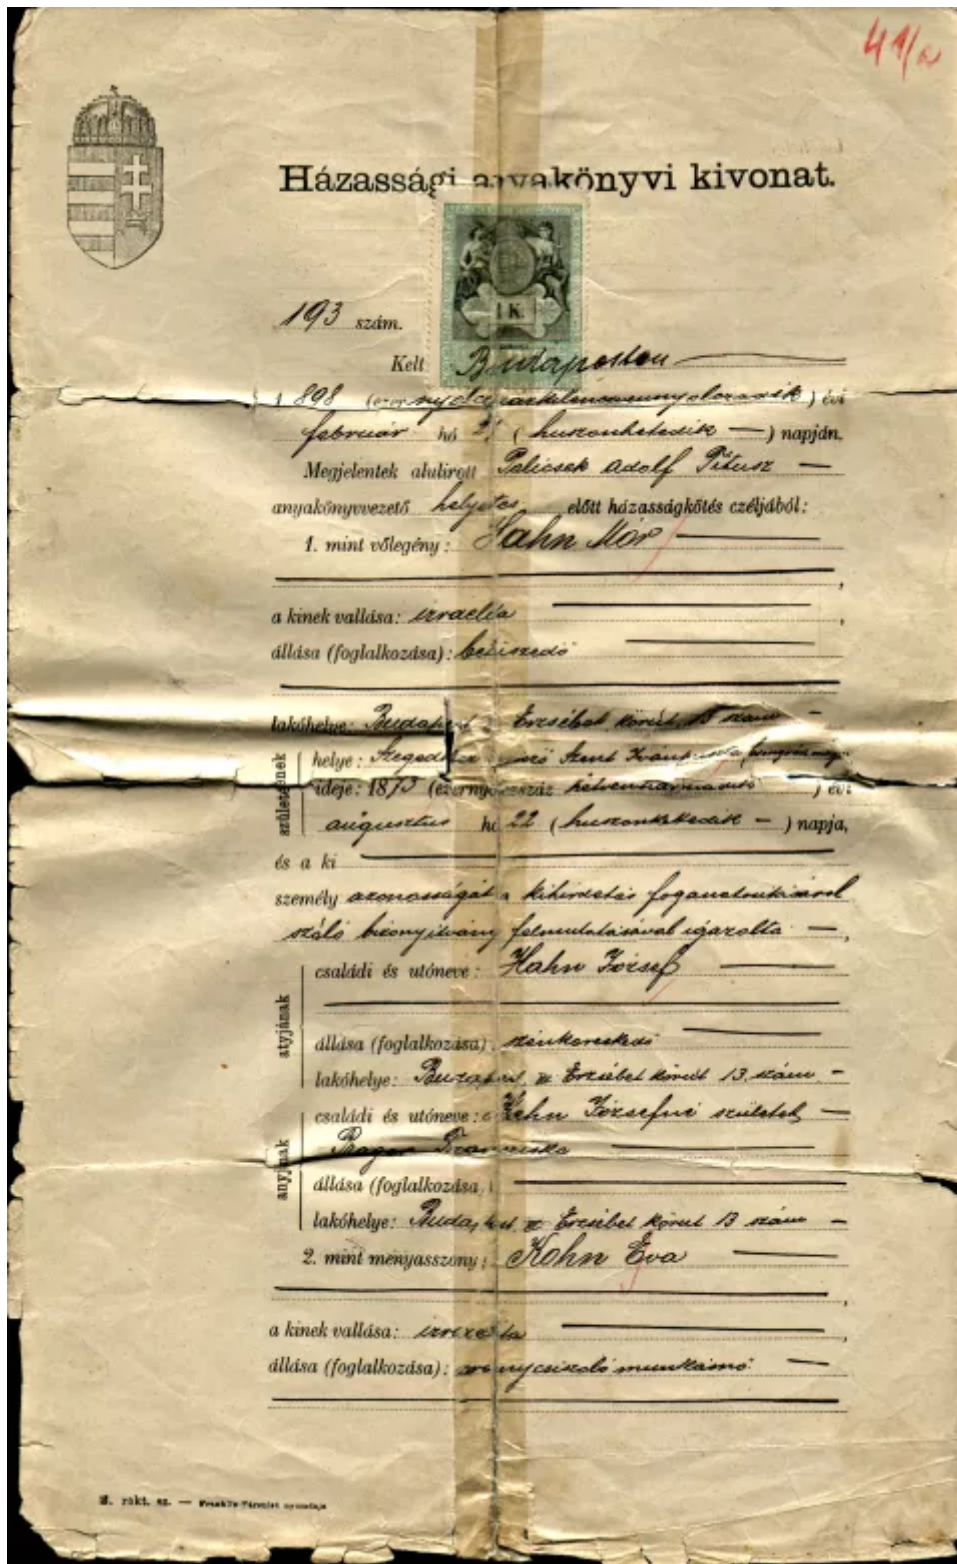 41/a
Házassági anyakönyvi kivonat.
1 K.
193 szám.
Kelt Budapesten
1898 (ezernyolczszázkilenczvennyolczadik) évi
február hó 27 (huszonhetedik) napján.
Megjelentek alulirott Adolf Titusz
anyakönyvvezető helyettes előtt házasságkötés czéljából:
1. mint vőlegény: Hahn Mór
a kinek vallása: izraelita
állása (foglalkozása):
lakóhelye: Budapest Erzsébet körut 13 szám
születésének
helye: Szent Iván
ideje: 1873 (ezernyolczszáz hetvenharmadik) évi
augusztus hó 22 (huszonkettedik) napja,
és a ki
személy azonosságát a kihirdetés foganatositásáról
szóló bizonyitvány felmutatásával igazolta
atyjának
családi és utóneve: Hahn József
állása (foglalkozása):
lakóhelye: Budapest, Erzsébet körut 13. szám
anyjának
családi és utóneve: Hahn Józsefné született
Franciska
állása (foglalkozása)
lakóhelye: Budapest, Erzsébet körut 13 szám
2. mint menyasszony: Kohn Eva
a kinek vallása: izraelita
állása (foglalkozása): munkásnő
rakt. sz. — Franklin-Társulat nyomdája